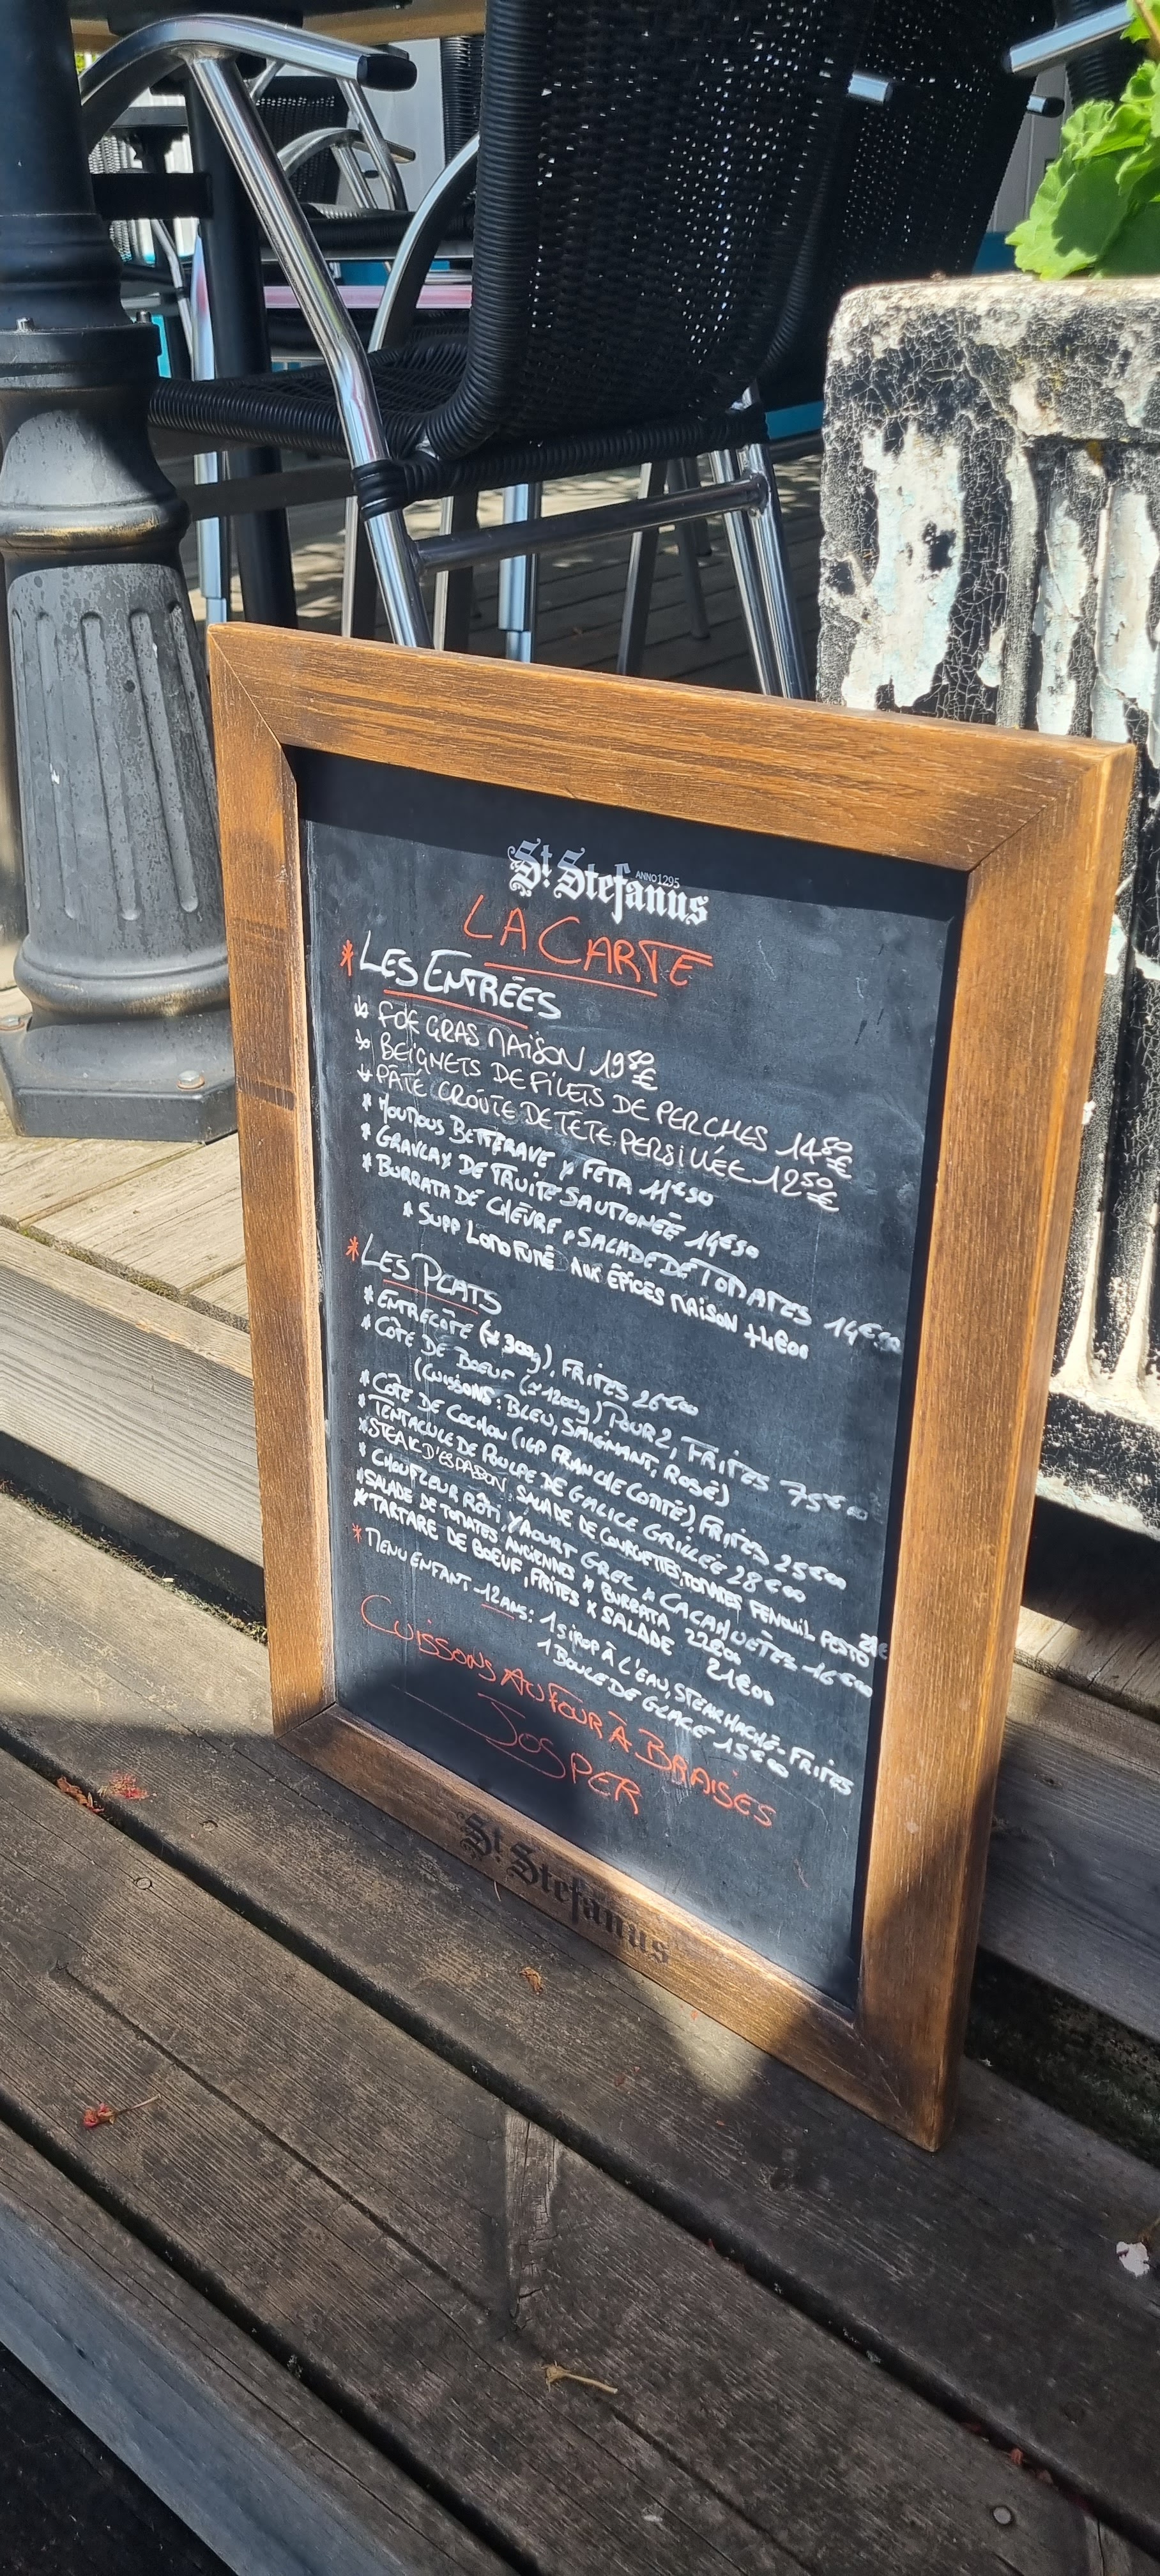 St Stefanus
ANNO 1295
LA CARTE
* LES ENTRÉES
FOIE GRAS MAISON 19€50
BEIGNETS DE FILETS DE PERCHES 14€50
PÂTÉ CROÛTE DE TÊTE PERSILLÉE 12€50
* HOUMOUS BETTERAVE x FETA 11€50
* GRAVLAX DE TRUITE SAUMONÉE 14€50
* BURRATA DE CHÈVRE, SALADE DE TOMATES 14€50
* SUPP LOMO FUMÉ AUX ÉPICES MAISON +4€00
* LES PLATS
* ENTRECÔTE (≈ 300g), FRITES 26€00
* CÔTE DE BOEUF (≈ 1200g) POUR 2, FRITES 75€00
(CUISSONS : BLEU, SAIGNANT, ROSÉ)
* CÔTE DE COCHON (IGP FRANCHE COMTÉ) FRITES 25€00
* TENTACULE DE POULPE DE GALICE GRILLÉE 28€00
* STEAK D'ESPADON, SALADE DE COURGETTES, TOMATES FENOUIL PESTO
* CHOUFLEUR RÔTI, YAOURT GREC x CACAHUÈTES 16€00
* SALADE DE TOMATES ANCIENNES x BURRATA 22€00
* TARTARE DE BOEUF, FRITES x SALADE 21€00
* MENU ENFANT -12 ANS : 1 SIROP À L'EAU, STEAK HACHÉ-FRITES
1 BOULE DE GLACE 15€00
CUISSONS AU FOUR À BRAISES
JOSPER
St Stefanus